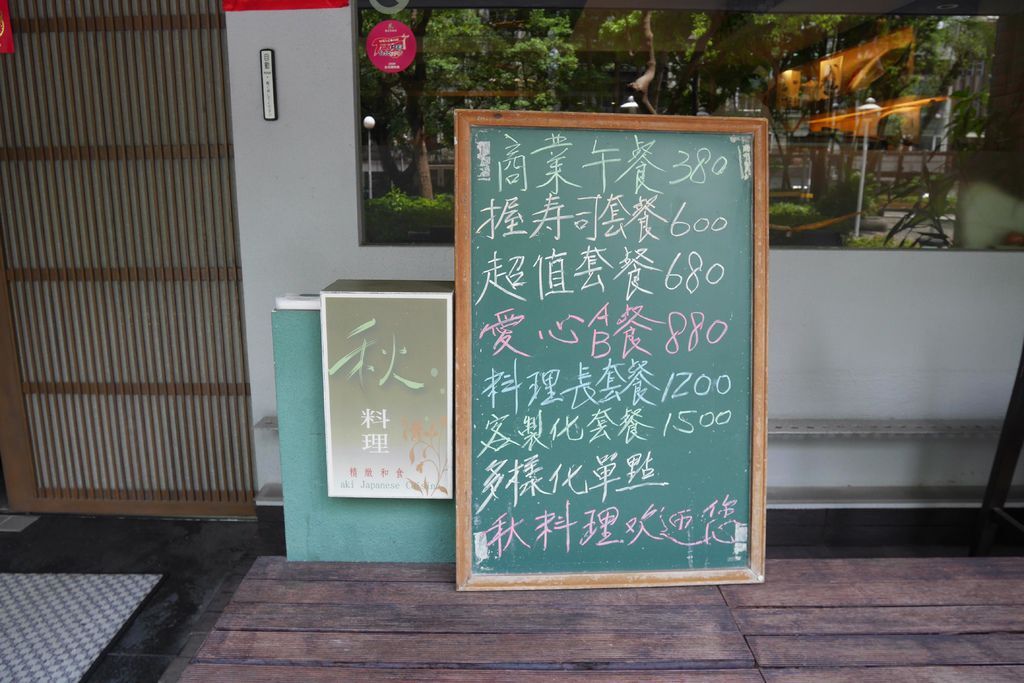 自動
商業午餐 380
握寿司套餐 600
超值套餐 680
愛心AB餐 880
料理長套餐 1200
客製化套餐 1500
多樣化單點
秋料理欢迎您
秋
料理
精緻和食
aki Japanese Cuisine